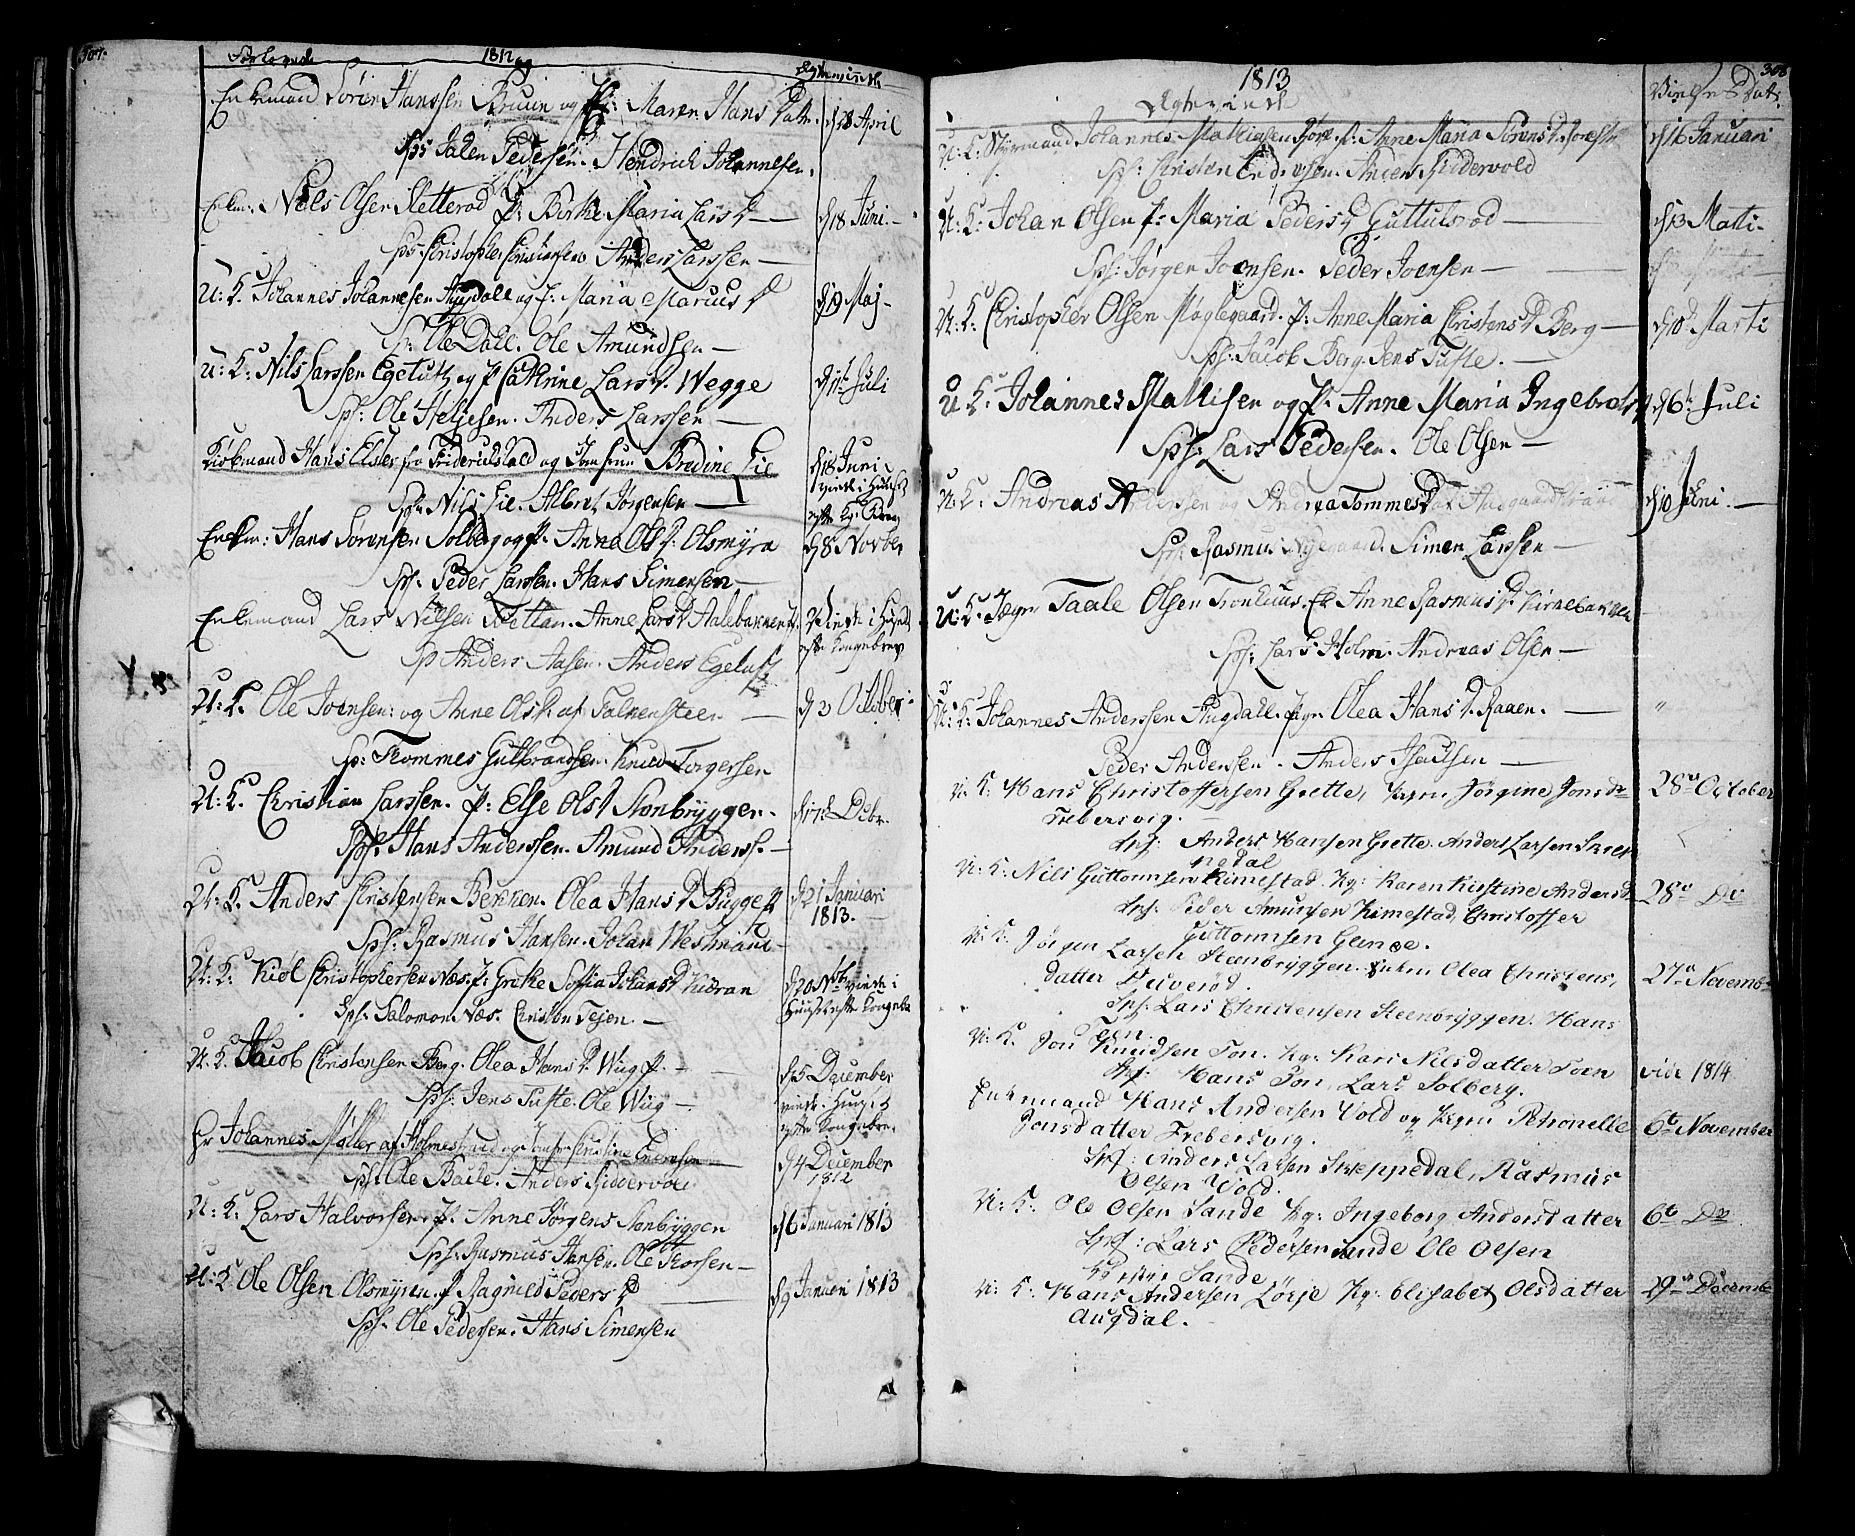 307.
Forlovede 1812 og Egteviede
Enkemand Sören Hanssen Bruun og P: Maren Hans Datr. d 28 April
Sps: Peders&n. Hendrich Johannesen.
Enkm: Niels Olsen Sletterød P: Birthe Maria Lars D — d 18 Juni. -
Sps: Christopher Christensen Anders Larssen —
U: K. Johannes Johannesen Augdall og P. Maria Marcus D d 19 Maj -
Sp: Ole Dall. Ole Amundsen —
U: K: Nils Larssen Egetuft og P Cathrine Lars D. Wegge d 11t Juli
Sps: Ole Helgesen. Anders Larssen —
Kiöbmand Hans Elster fra Friderichstad og Jomfrue Bredine Lie d 18 Juni
viede i Huuset
efter Kg. Brev
Sps: Nils Lie. Albret Jørgensen —
Enkm: Hans Sørensen Solberg og P. Anne Ols D. Olsmyra d 8 Novber
Sps. Peder Larssen. Hans Simensen —
Enkemand Lars Nilsen Tvettan. Anne Lars D Aalebakken P. Viede i Huset
efter Kongebrev
Sp Anders Aasen. Anders Egetuft
U: K. Ole Joensen: og Anne Olsd. af Falkensteen — d 3 October
Sp: Tommes Gulbrandsen. Knud Torgersen
U: K. Christian Larssen. P: Else Ols D Stenbryggen. d 17de Decbr.
Sps: Hans Anderssen. Amund Anderss. —
U: K. Anders Christensen Bekken. Olea Hans D Bugge P d 21 Januari
1813. —
Sps: Rasmus Hansen. Johan Westmand —
U: K: Kiöl Christophersen Næs. P: Grethe Sophia Johans D d 20 Nvbr viede i
Huuset efter Kongebr
Sps: Salomon Næs. Christen Tejen. —
U: K. Jacob Christensen Berg. Olea Hans D Wiig P. — d 5 December
viede i Huuset
efter Kongebrev
Sps: Jens Tufte. Ole Wiig —
Hr Johannes Møller af Holmestrand og Jomfr Christine Evensen d 4 December
1812
Sps. Ole Backe. Anders Kiddervold
U: K: Lars Halvorsen. P. Anne Jørgens Stenbryggen d 6 Januari 1813
Sps: Rasmus Hansen. Ole Thorsen —
U: K Ole Olsen Olsmyren. P Ragnild Peders D d 9 Januari 1813
Sps. Ole Pedersen. Hans Simensen
308
1813
Egteviede Vielses Dat.
U: K: Styrmand Johannes Mathissen P. Anne Maria Sørens D. d 16 Januari
Sps: Christen Endresen. Anders Kiddervold
U: K: Johan Olsen P: Maria Peders D Guttulsrød — d 13 Marti -
Sps: Jørgen Joensen. Peder Joensen —
U: K: Christopher Olsen Møglegaard. P: Anne Maria Christens D Berg — d 10 Marti
Sps: Jacob Berg. Jens Tufte. —
U K. Johannes Mathisen og P. Anne Maria Ingebrets D d 6t Juli
Sps: Lars Pedersen. Ole Olsen —
U. K. Andreas og Andrea Tommes D af Aasgaardstrand d 10 Juni. —
Sps: Rasmus Nygaard. Simen Larssen —
U: K: Taale Olsen Anne Rasmus D. Kirkebakken
Sps: Lars Holm. Andreas Olsen —
U: K: Johannes Anderssen Augdall. Olea Hans D. Raaen. — "
Peder Andersen. Anders Isaksen —
U: K: Hans Christoffersen Grette, Pigen Jørgine Jonsd: 28de October
Frebersvig. —
Spf: Anders Hansen Grette. Anders Larsen Skrep
pedal
U: K: Nils Guttormsen Kimestad. Pg: Karen Kirstine Andersd 28de Do
Spf: Peder Amunsen Kimestad, Christoffer
Guttormsen Gunde.
U: K: Jørgen Larsen Steenbryggen. Enken Olea Christens, 27de November
datter Duverød.
Spf: Lars Christensen Steenbryggen. Hans
Fon.
U: K. Jon Knudsen Fon. Pg: Kari Nilsdatter Foen vide 1814
Spf: Hans Fon, Lars Solberg.
Enkemand Hans Andersen Vold og Pigen Petronelle 6te November
Jonsdatter Frebersvig.
Spf: Anders Larsen Skreppedal, Rasmus
Olsen Vold.
U: K: Ole Olsen Sande Pg: Ingeborg Andersdatter 6te Do
Spf: Lars Pedersen Sande Ole Olsen
Sande
U: K: Hans Andersen Lørge Pg: Elisabet Olsdatter 29de December
Augdal. -